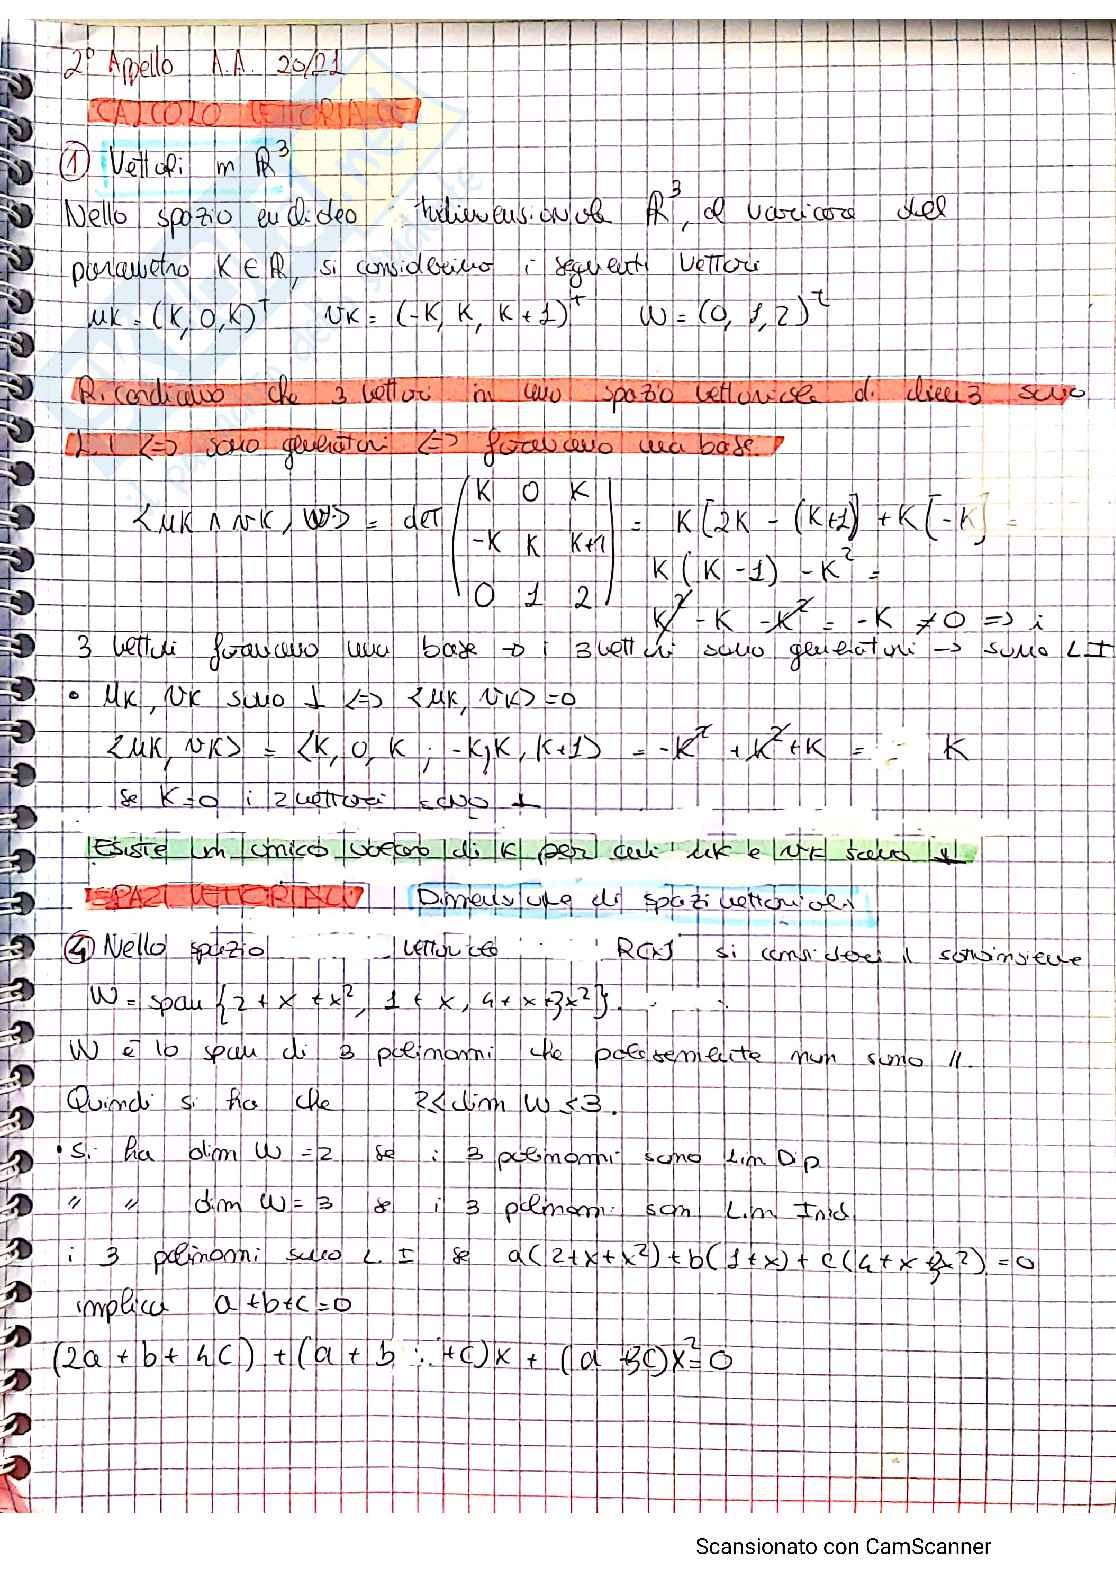 2° Appello A.A. 20/21
CALCOLO VETTORIALE
① Vettori in ℝ³
Nello spazio euclideo tridimensionale ℝ³, al variare del
parametro K ∈ ℝ, si considerino i seguenti vettori
uK = (K, 0, K)ᵗ vK = (-K, K, K+1)ᵗ W = (0, 1, 2)ᵗ
Ricordiamo che 3 vettori in uno spazio vettoriale di dim 3 sono
L.I <=> sono generatori <=> formano una base.
<uK ∧ vK, W> = det (K 0 K = K[2K - (K+1)] + K[-K] =
-K K K+1 K(K-1) - K² =
0 1 2) K² - K - K² = -K ≠ 0 => i
3 vettori formano una base → i 3 vettori sono generatori → sono L I
• uK, vK sono ⊥ <=> <uK, vK> = 0
<uK, vK> = <K, 0, K ; -K, K, K+1> = -K² + K² + K = K
se K=0 i 2 vettori sono ⊥
Esiste un unico valore di K per cui uK e vK sono ⊥
SPAZI VETTORIALI Dimensione di spazi vettoriali
④ Nello spazio vettoriale R[x] si consideri il sottoinsieme
W = span {2 + x + x², 1 + x, 4 + x + 3x²}.
W è lo span di 3 polinomi che palesemente non sono //.
Quindi si ha che 2 ≤ dim W ≤ 3.
• Si ha dim W = 2 se i 3 polinomi sono Lin Dip
" " dim W = 3 se i 3 polinomi son Lin Ind
i 3 polinomi sono L. I se a(2+x+x²)+b(1+x)+c(4+x+3x²) = 0
implica a+b+c=0
(2a + b + 4c) + (a + b + c)x + (a + 3c)x² = 0
Scansionato con CamScanner